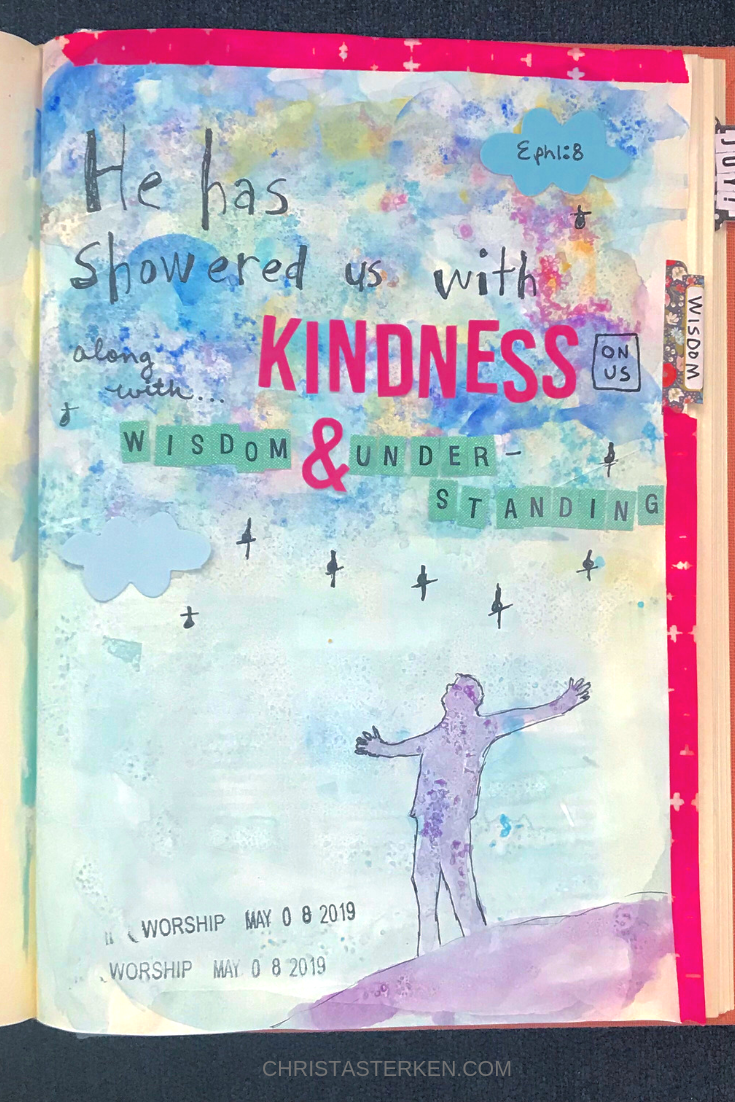 Eph1:8
He has
showered us with
KINDNESS
ON
US
along
with...
WISDOM & UNDER-
STANDING
WISDOM
WORSHIP MAY 08 2019
WORSHIP MAY 08 2019
CHRISTASTERKEN.COM